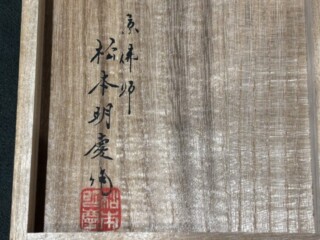 京佛師
松本明慶作
松本
明慶